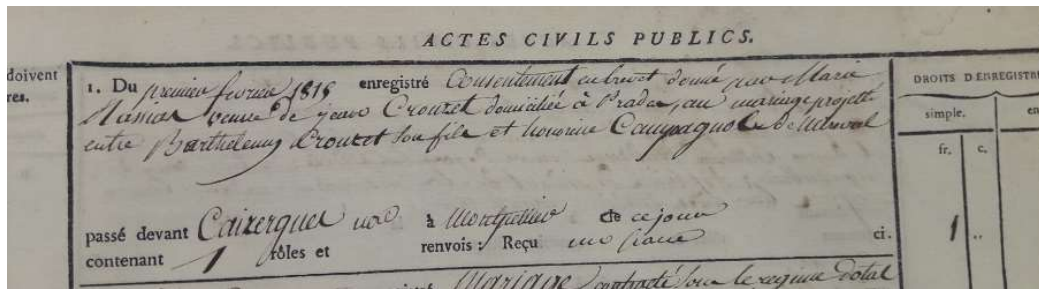 ACTES CIVILS PUBLICS.
doivent
res.
DROITS D'ENREGISTRE
simple.
en
fr. c.
1. Du premier fevrier 1815 enregistré Consentement en brevet donné par Marie
Massias veuve de jean Crouzet domiciliée à Prades, au mariage projetté
entre Barthelemy Crouzet son fils et honorine Campagnol de
passé devant Caizergues nre à Montpellier de ce jour
contenant 1 rôles et renvois : Reçu un franc ci.
1 ..
Mariage contracté sous le regime dotal